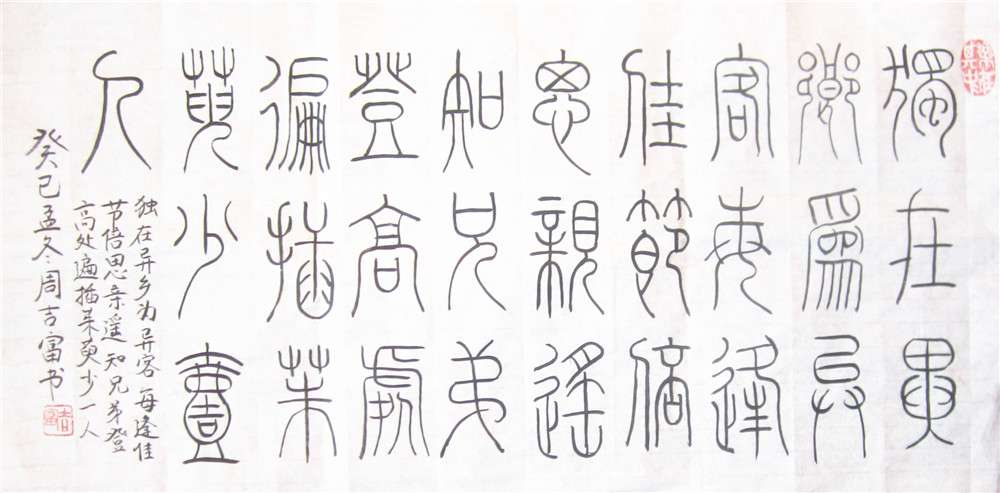 樂在其中
獨在異
鄉爲异
客每逢
佳節倍
思親遙
知兄弟
登高處
徧插茱
萸少壹
人
独在异乡为异客每逢佳
节倍思亲遥知兄弟登
高处遍插茱萸少一人
癸巳孟冬周吉富书